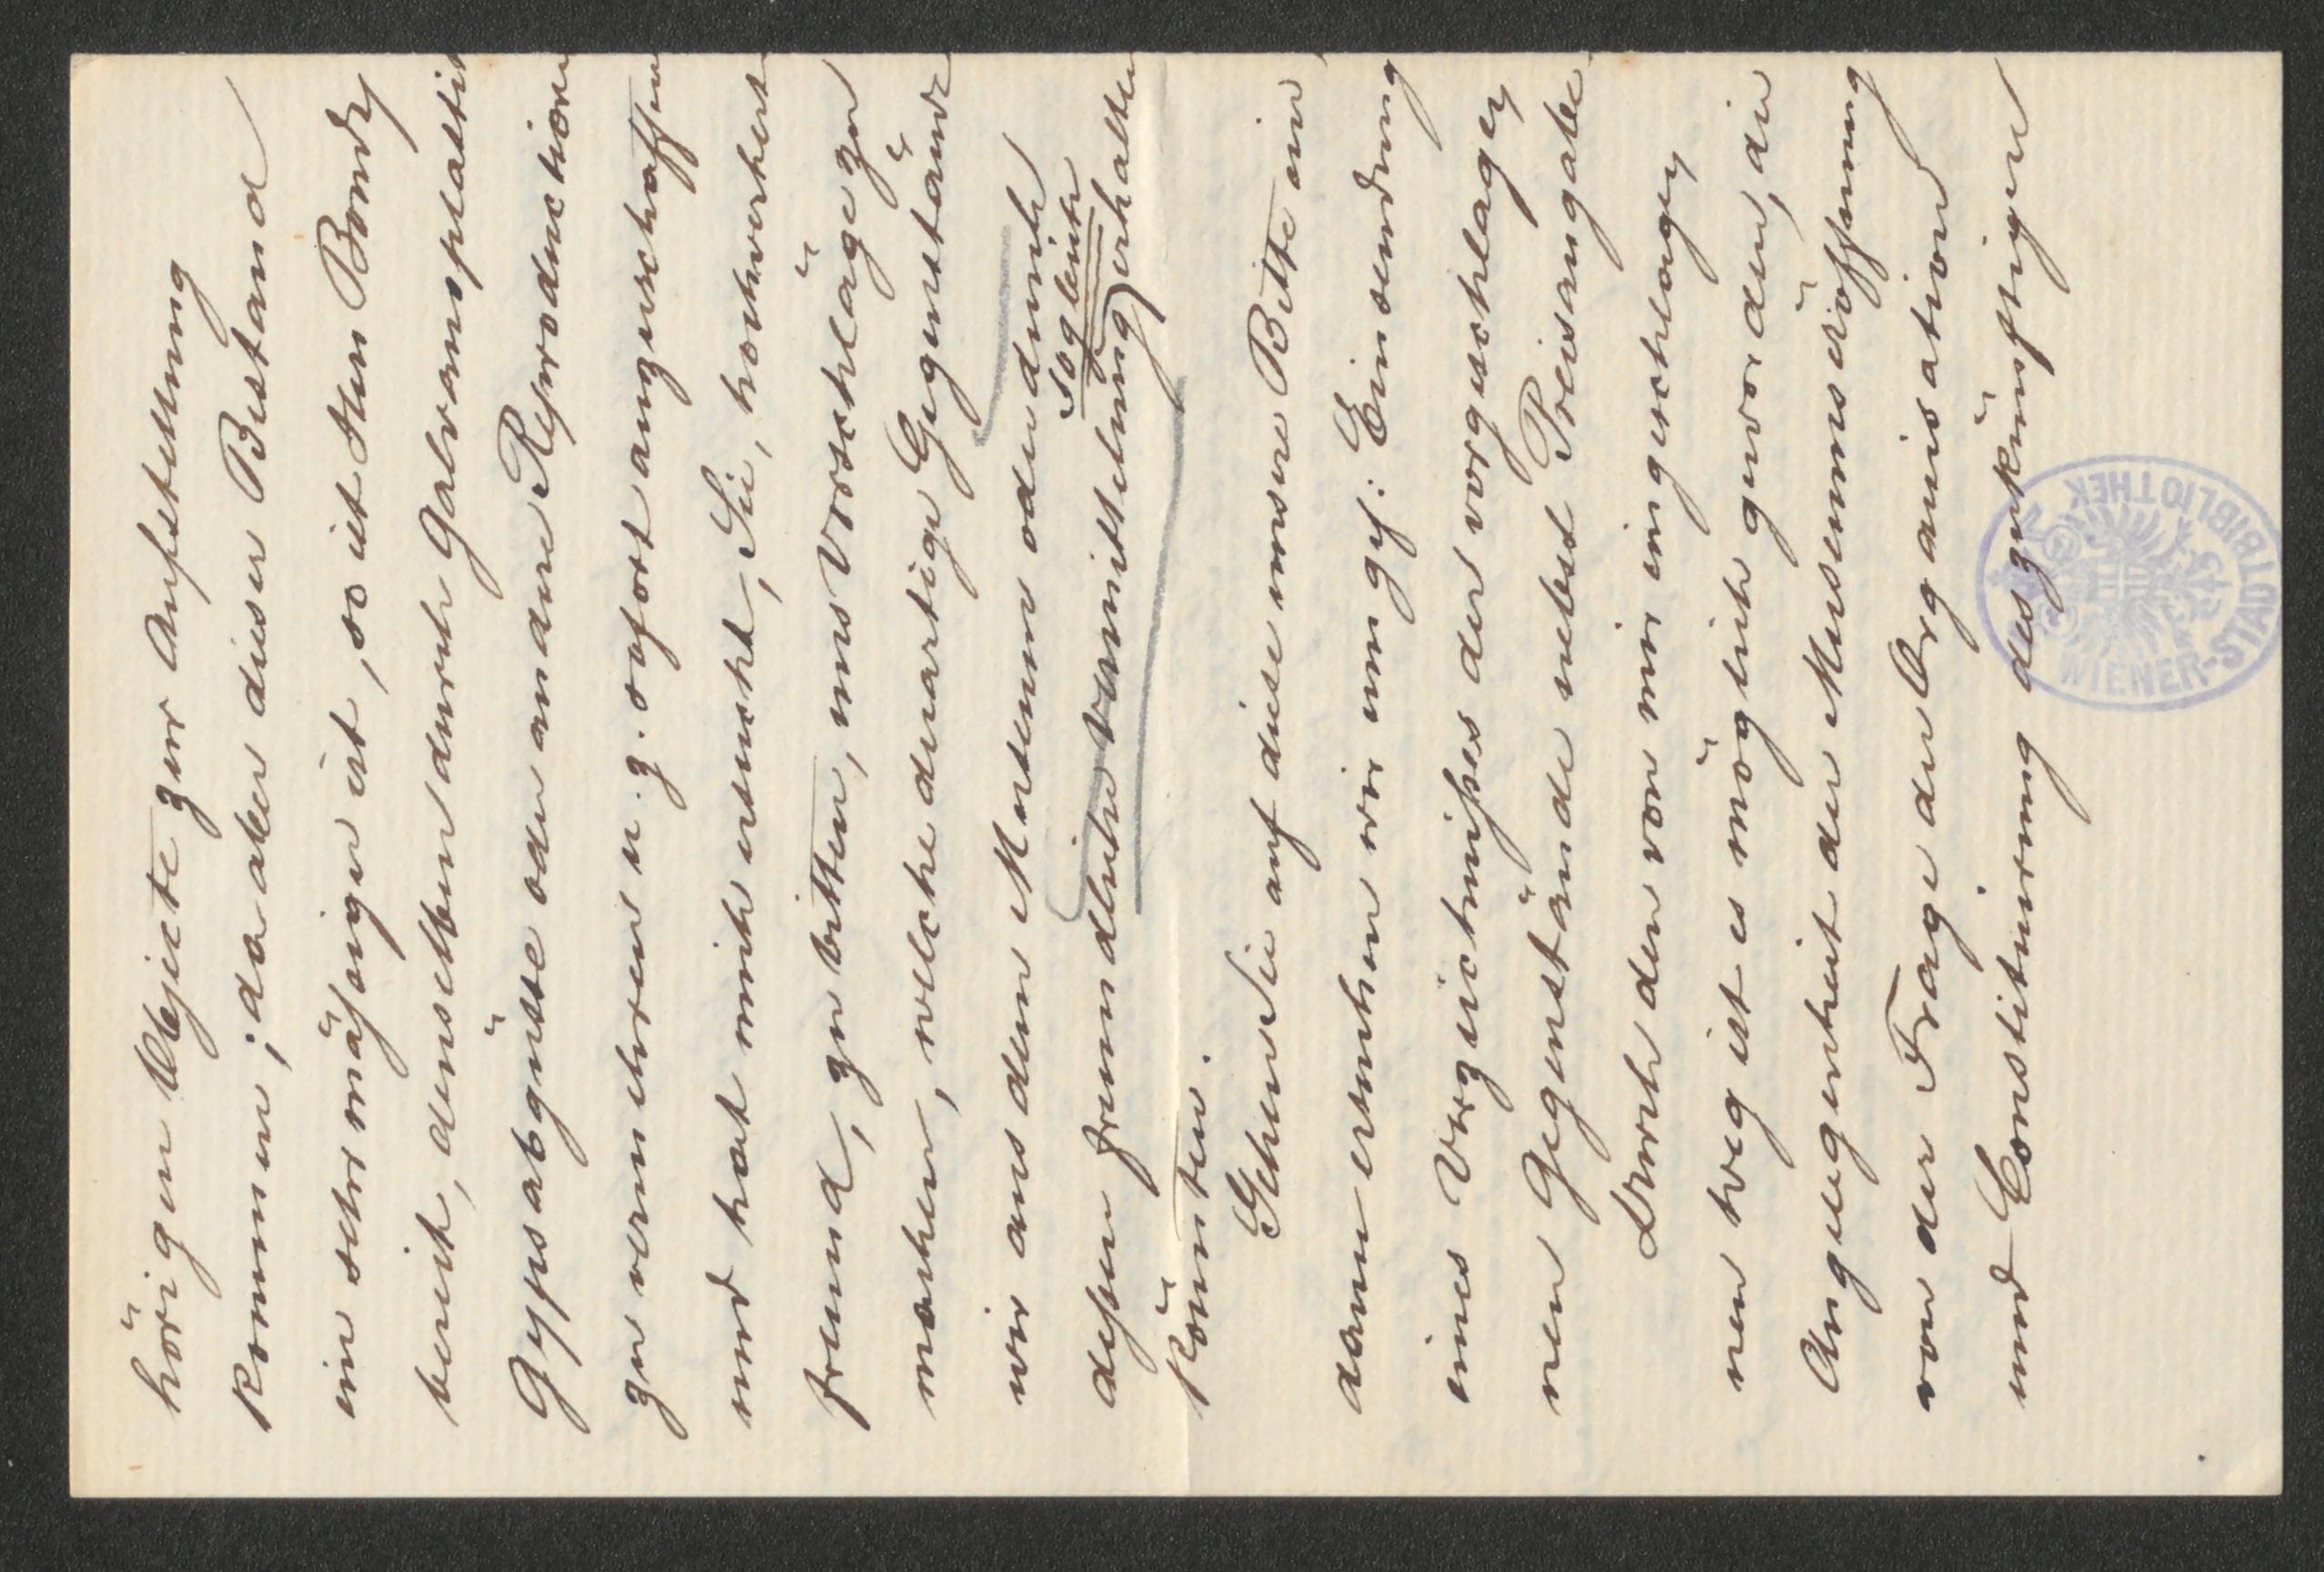 hörigen Objecte zur Aufstellung
kommen; da aber dieser Bestand
ein sehr mäßiger ist, so ist Herr Bondy
bereit, denselben durch Galvanoplastik
Gypsabgüsse oder andere Reproductionen
zu vermehren u. z. sofort anzuschaffen
und hat mich ersucht, Sie, hochverehrt
Freund, zu bitten, uns Vorschläge zu
machen, welche derartige Gegenstände
wir aus dem Museum oder durch
dessen freundliche Vermittelung sogleich erhalten
könnten.
Gehen Sie auf diese unsere Bitte ein,
dann ersuchen wir um gef: Einsendung
eines Verzeichnißes der vorgeschlage
nen Gegenstände nebst Preisangabe.
Durch den von mir eingeschlage
nen Weg ist es möglich geworden, die
Angelegenheit der Museumseröffnung
von der Frage der Organisation
und Constituirung des zukünftigen
WIENER-STADTBIBLIOTHEK